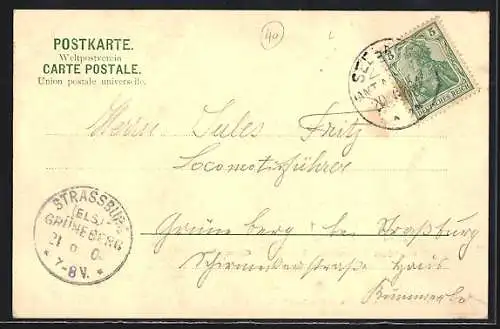 40
POSTKARTE.
Weltpostverein
CARTE POSTALE.
Union postale universelle.
5
5
DEUTSCHES REICH
Herrn Jules Fritz
Locomotivführer
Grüneberg bei Straßburg
Schirmeckerstraße Haus
STRASSBURG
(ELS.)
GRÜNEBERG
21 9 0
* 7-8V. *